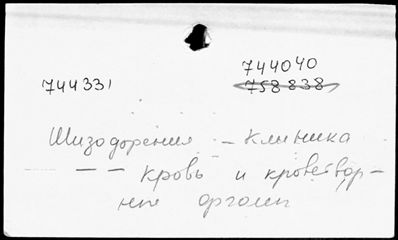 744040
744331 758838
Шизофрения – клиника
— — кровь и кроветвор-
ные органы